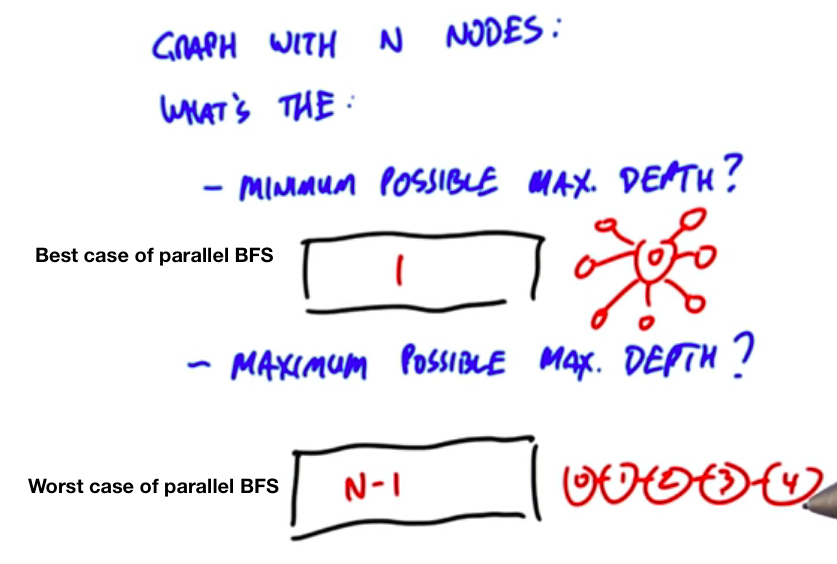 GRAPH WITH N NODES:
WHAT'S THE:
- MINIMUM POSSIBLE MAX. DEPTH?
Best case of parallel BFS
1
0
- MAXIMUM POSSIBLE MAX. DEPTH?
Worst case of parallel BFS
N-1
0 1 2 3 4